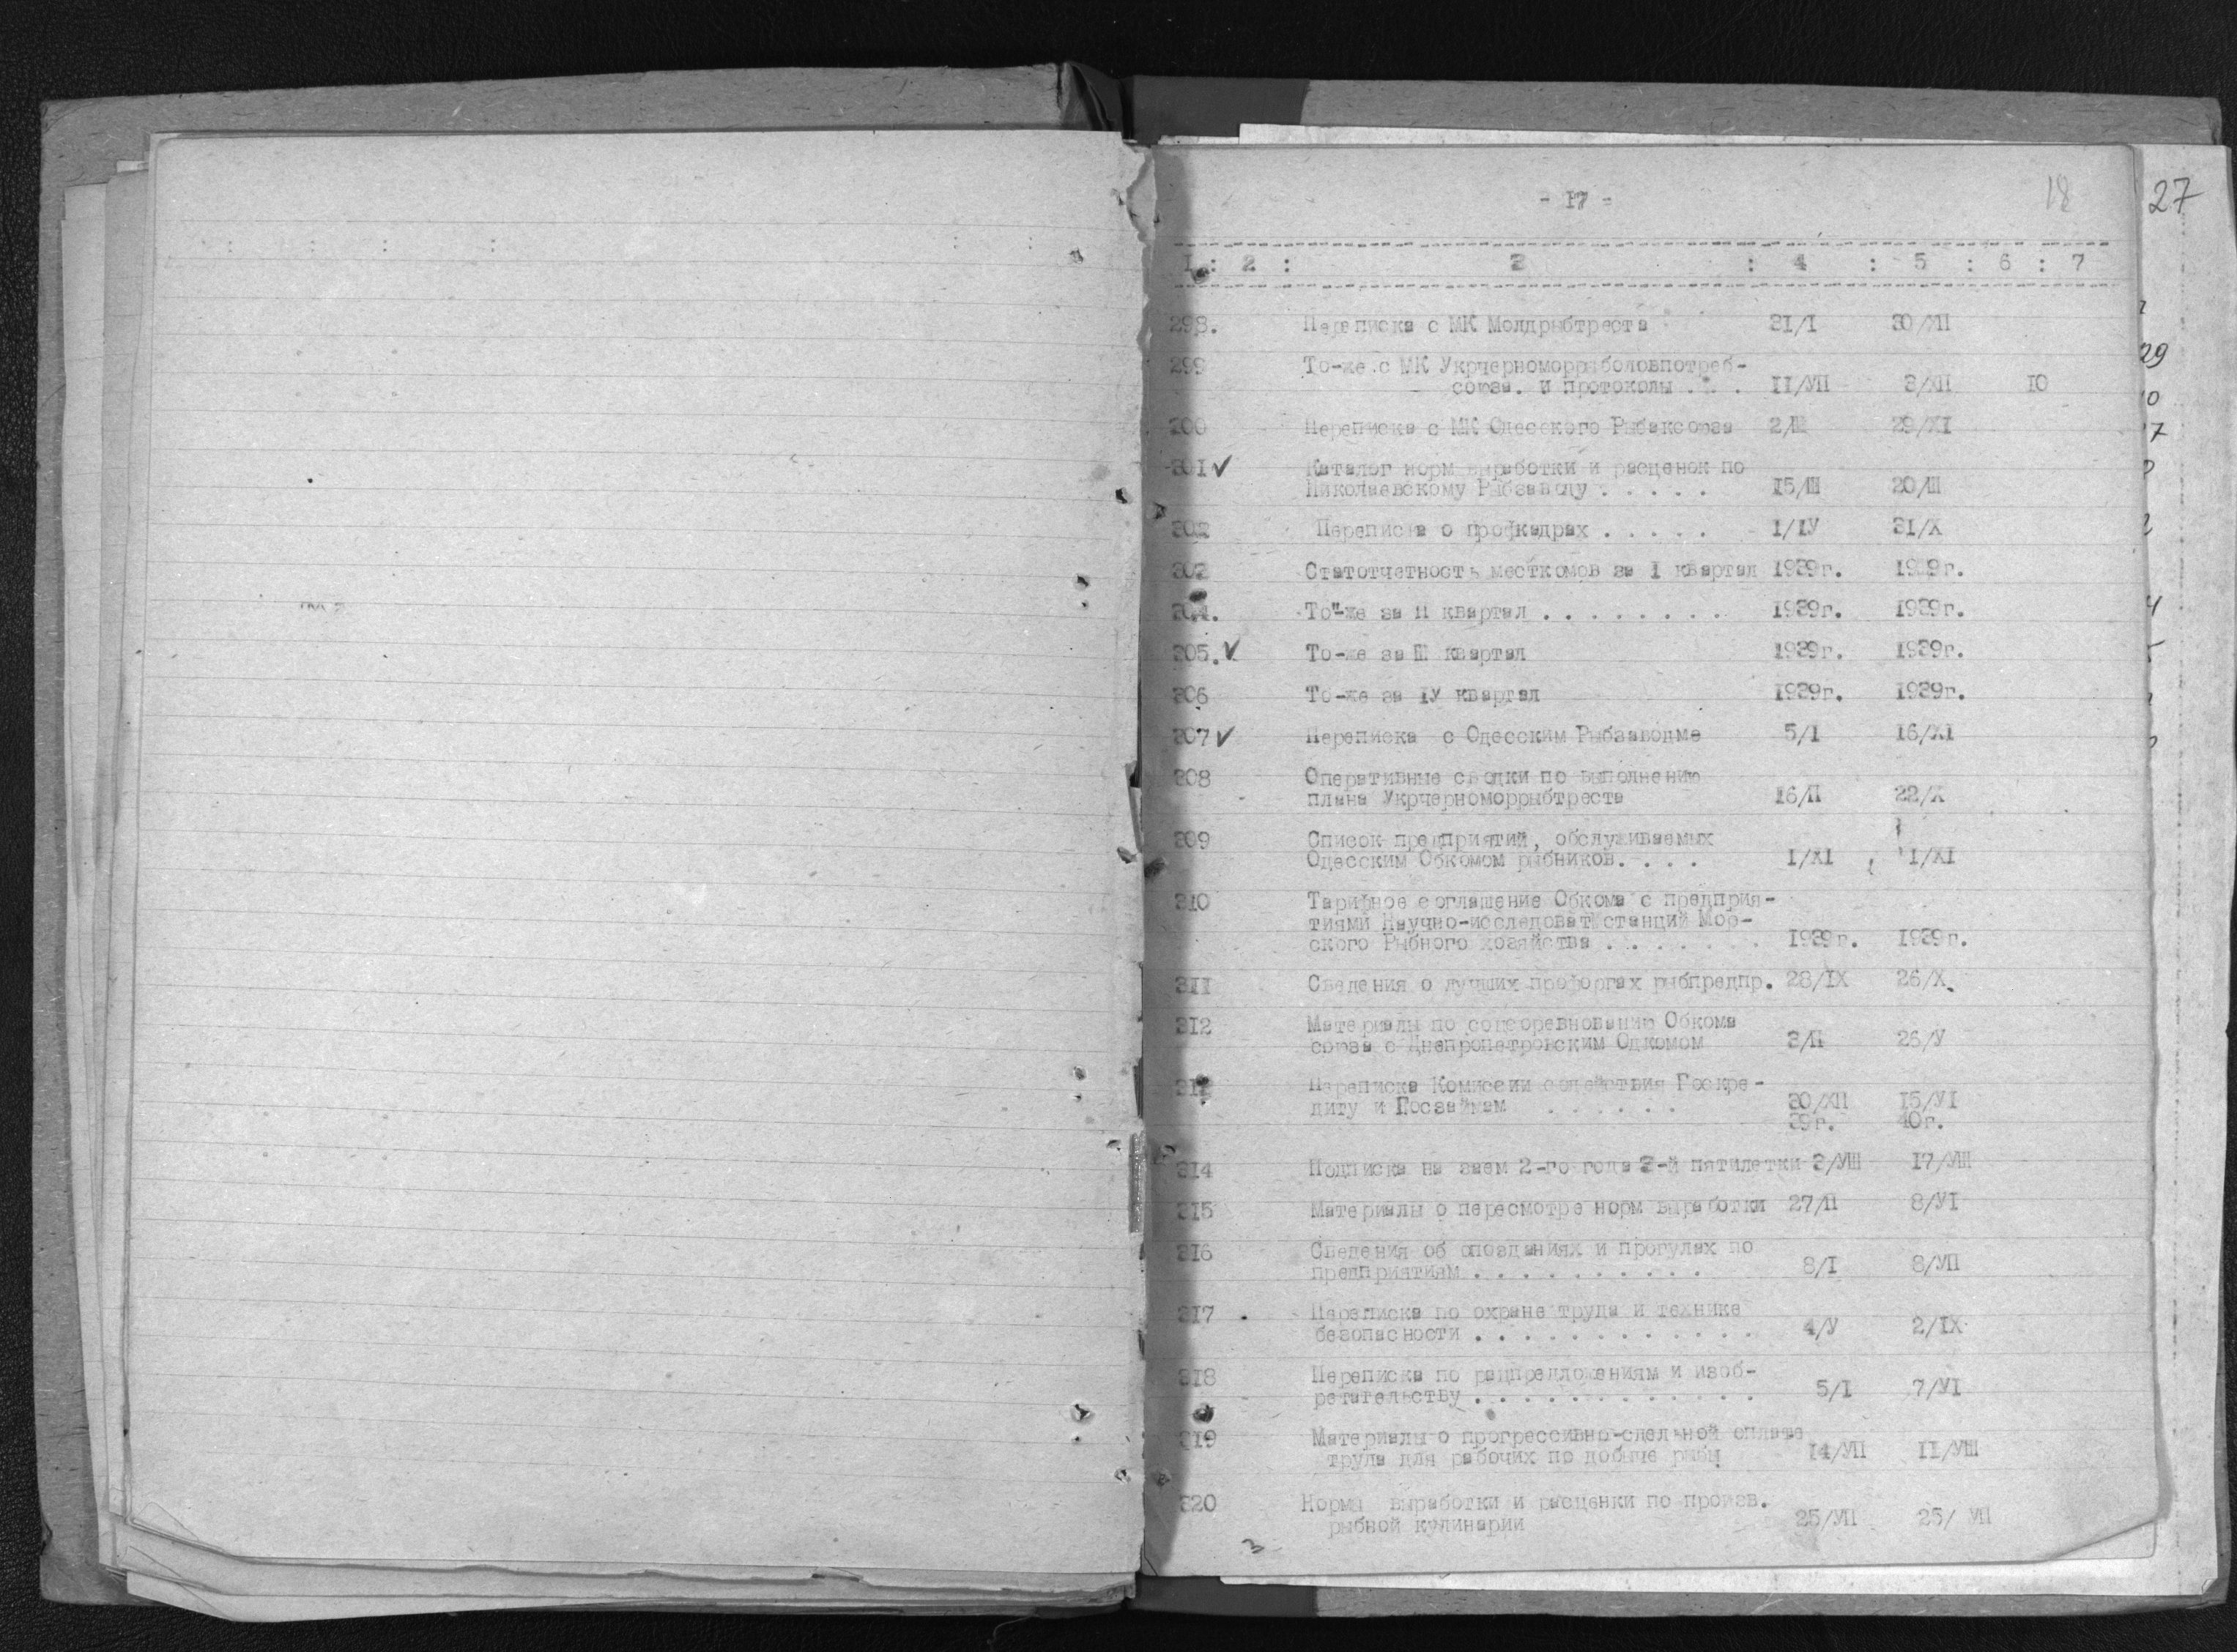 - 17 -
18
27
1 : 2 : 3 : 4 : 5 : 6 : 7
298. Переписка с МК Молдрыбтреста 31/I 30/XII
299 То-же с МК Укрчерноморрыболовпотреб-
союза. и протоколы . . . II/УП 3/XII 10
300 Переписка с МК Одесского Рыбаксоюза 2/Ш 29/XI
301 ✓ Каталог норм выработки и расценок по
Николаевскому Рыбзаводу . . . . . 15/Ш 20/Ш
302 Переписка о профкадрах . . . . . 1/1У 31/X
303 Статотчетность месткомов за I квартал 1939г. 1939г.
304. То"-же за П квартал . . . . . . . . 1939г. 1939г.
305. ✓ То-же за Ш квартал 1939г. 1939г.
306 То-же за 1У квартал 1939г. 1939г.
307 ✓ Переписка с Одесским Рыбзаводме 5/1 16/XI
308 Оперативные сводки по выполнению
плана Укрчерноморрыбтреста 16/П 22/X
309 Список предприятий, обслуживаемых
Одесским Обкомом рыбников. . . . I/XI I/XI
310 Тарифное соглашение Обкома с предприя-
тиями Научно-исследоват станций Мор-
ского Рыбного хозяйства . . . . . . . 1939г. 1939г.
311 Сведения о лучших профоргах рыбпредпр. 28/IX 26/X
312 Материалы по соцсоревнованию Обкома
союза с Днепропетровским Одкомом 3/П 26/У
313 Переписка Комиссии содействия Госкре-
диту и Госзаймам . . . . . . 30/XП 15/У1
39г. 40г.
314 Подписка на заем 2-го года 3-й пятилетки 3/УШ 17/УШ
315 Материалы о пересмотре норм выработки 27/П 8/У1
316 Сведения об опозданиях и прогулах по
предприятиям . . . . . . . . . . 8/I 8/УП
317 Переписка по охране труда и технике
безопасности . . . . . . . . . . . . 4/У 2/IX
318 Переписка по рацпредложениям и изоб-
ретательству . . . . . . . . . . . . 5/I 7/У1
319 Материалы о прогрессивно-сдельной оплате
труда для рабочих по добыче рыбы 14/УП II/УШ
320 Нормы выработки и расценки по произв.
рыбной кулинарии 25/УП 25/ УП
3